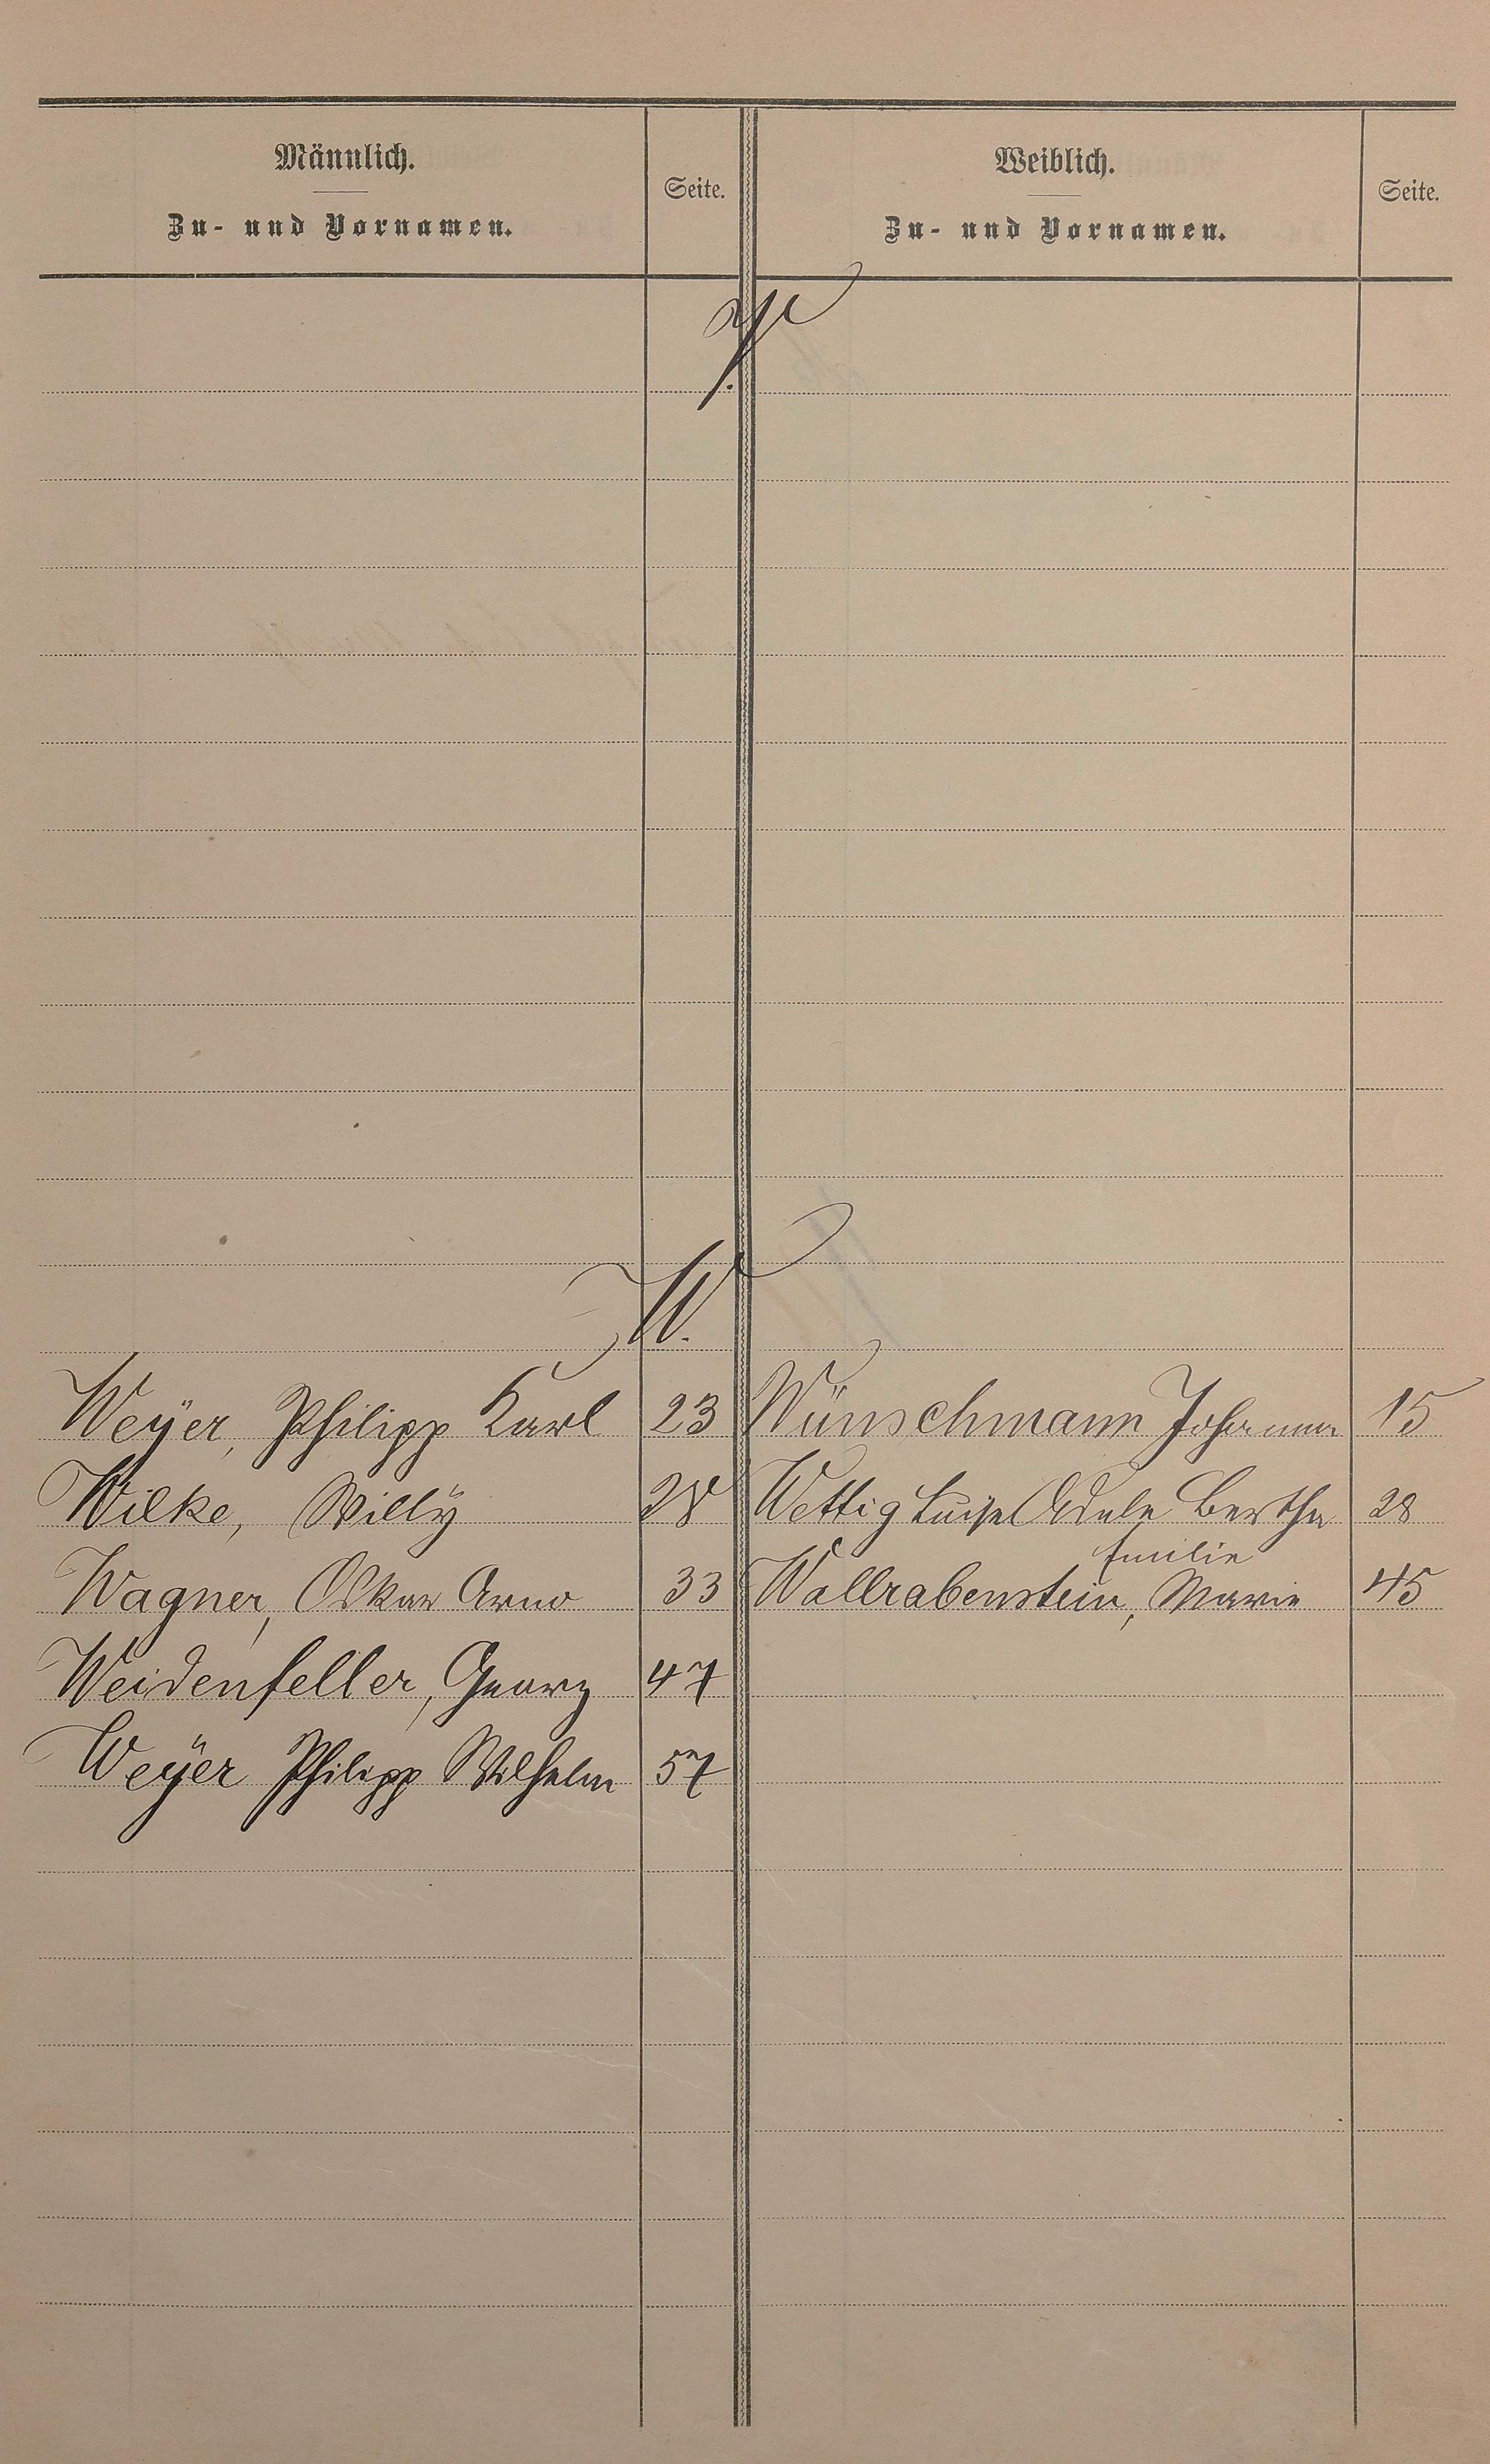 Männlich.
Zu- und Vornamen.
Seite.
Weiblich.
Zu- und Vornamen.
Seite.
W.
Weÿer, Philipp Karl 23
Wünschmann Johanna 15
Wilke, Willÿ 28
Wettig Luise Adele Bertha 28
Emilie
Wagner, Oskar Arno 33
Wallrabenstein, Marie 45
Weidenfeller, Georg 47
Weÿer Philipp Wilhelm 57